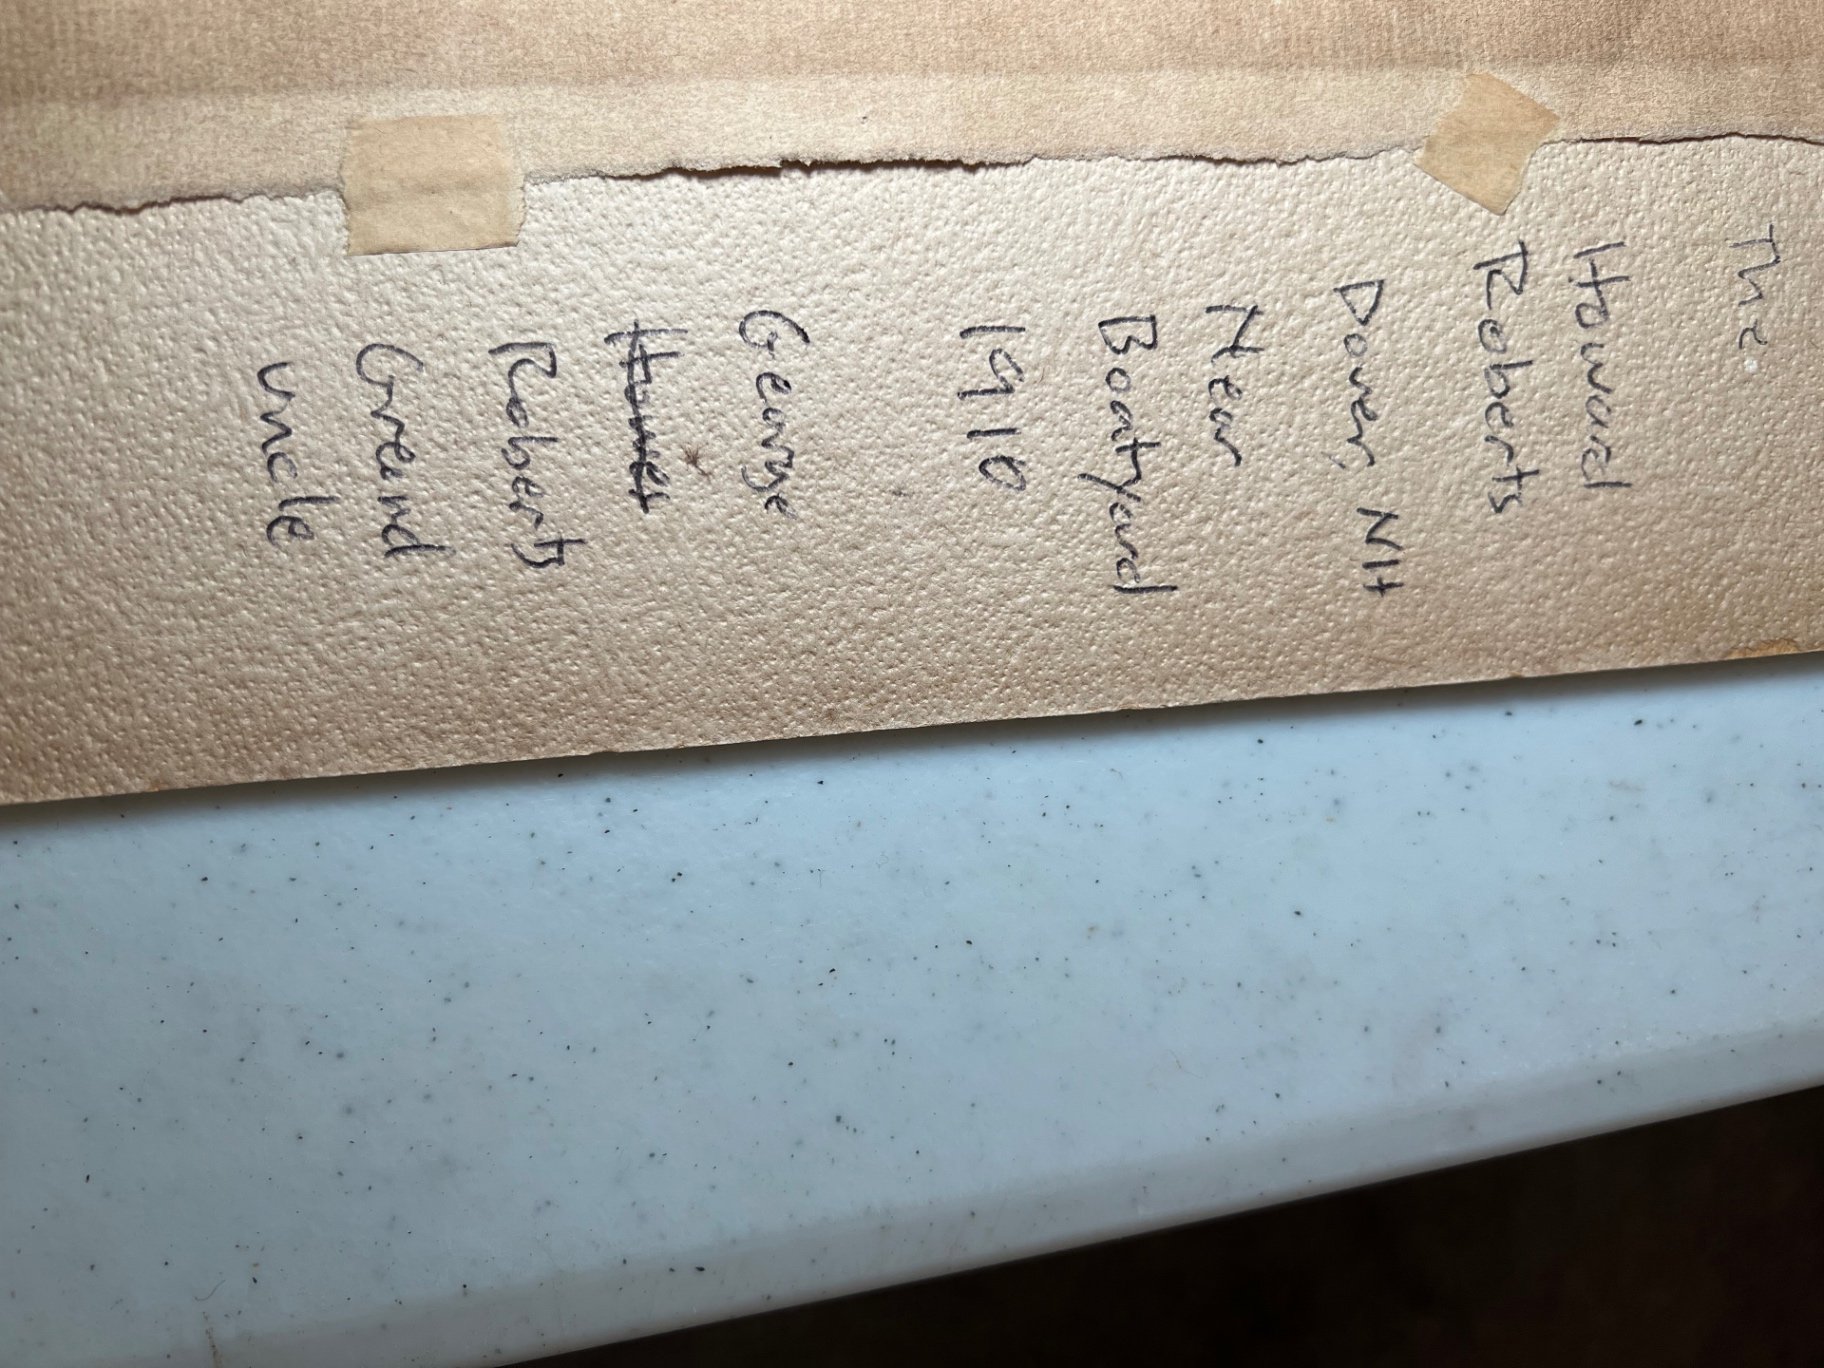 The
Howard
Roberts
Dover, NH
Near
Boatyard
1910
George
Roberts
Greand
Uncle